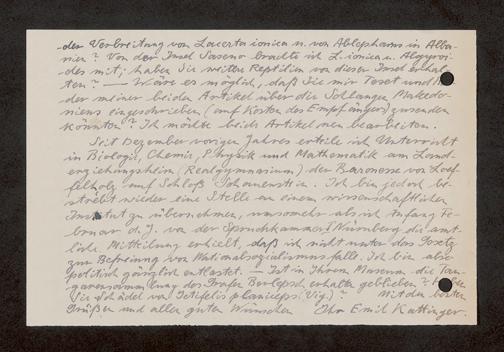 der Verbreitung von Lacerta ionica u. von Ablepharus in Alba-
nien? Von der Insel Saseno brachte ich L. ionica u. Algyroi-
des mit; haben Sie weitere Reptilien von dieser Insel erhal-
ten? — Wäre es möglich, daß Sie mir Text und
der meiner beiden Artikel über die Schlangen Makedo-
niens eingeschrieben (auf Kosten des Empfängers) zusenden
könnten? Ich möchte beide Artikel neu bearbeiten.
Seit Dezember vorigen Jahres erteile ich Unterricht
in Biologie, Chemie, Physik und Mathematik am Land-
erziehungsheim (Realgymnasium) der Baronesse von Loef-
felholz auf Schloß. Ich bin jedoch be-
strebt wieder eine Stelle an einem wissenschaftlichen
Institut zu übernehmen, umsomehr als ich Anfang Fe-
bruar d. J. von der Spruchkammer I Nürnberg die amt-
liche Mitteilung erhielt, daß ich nicht unter das Gesetz
zur Befreiung von Nationalsozialismus falle. Ich bin also
politisch gänzlich entlastet. — Ist in Ihrem Museum die Tan-
garensammlung des Grafen Berlepsch erhalten geblieben? Haben
Sie Schädel von Ictifelis planiceps (Vig.)? Mit den besten
Grüßen und allen guten Wünschen Ihr Emil Kattinger.